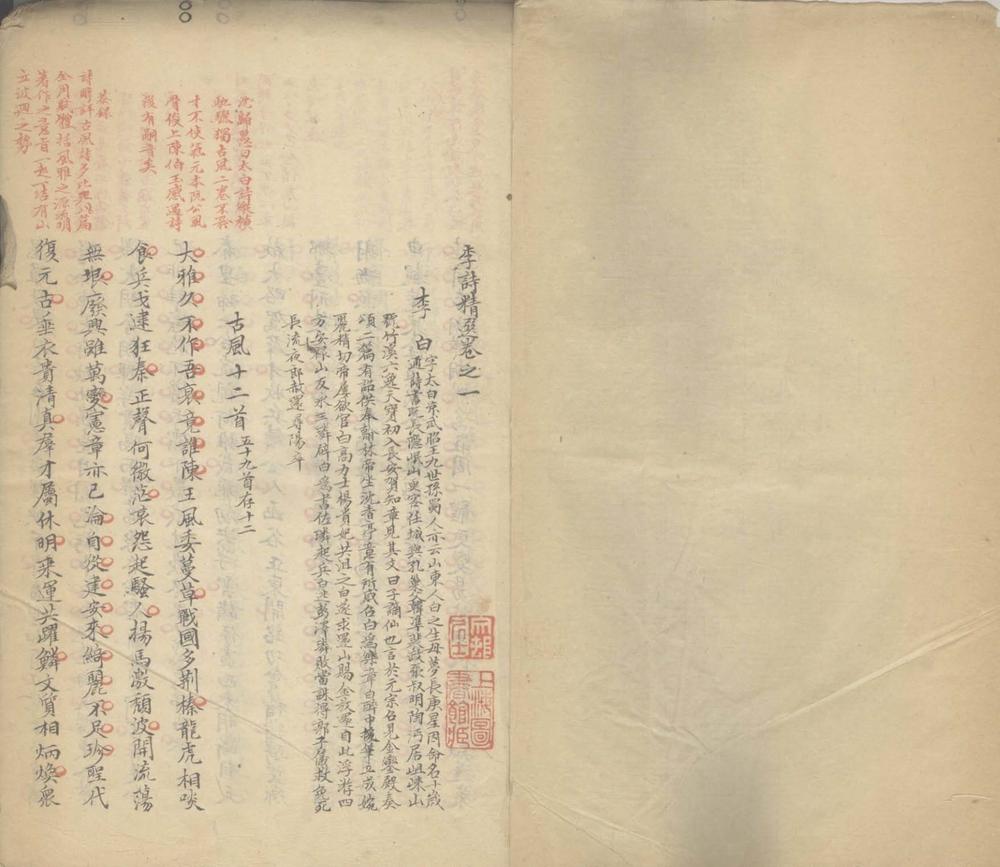 李詩精選卷之一
李白
字太白京武昭王九世孫蜀人亦云山東人白之生母夢長庚星因命名十歲
通詩書既長隱岷山更客任城與孔巢父韓準裴政張叔明陶沔居徂徠山
號竹溪六逸天寶初入長安賀知章見其文曰子謫仙也言於元宗召見金鑾殿奏
頌一篇有詔供奉翰林帝坐沈香亭意有所感召白為樂章白醉中援筆立成婉
麗精切帝屢欲官白高力士楊貴妃共沮之白遂求還山賜金放還自此浮游四
方安祿山反永王璘辟白為書佐璘起兵白逃彭澤璘敗當誅得郭子儀救免死
長流夜郎赦還尋陽卒
古風十二首
五十九首存十二
大雅久不作吾衰竟誰陳王風委蔓草戰國多荆榛龍虎相啖
食兵戈逮狂秦正聲何微茫哀怨起騷人揚馬激頽波開流蕩
無垠廢興雖萬變憲章亦已淪自從建安來綺麗不足珍聖代
復元古垂衣貴清真羣才屬休明乘運共躍鱗文質相炳煥衆
沈歸愚曰太白詩縱橫
馳驟獨古風二卷不矜
才不使氣元本阮公風
骨俊上陳伯玉感遇詩
後有嗣音矣
恭錄
詩醇評古風詩多比興此篇
全用賦體括風雅之源流明
著作之意旨一起一結有山
立波迴之勢
上海圖
書館藏